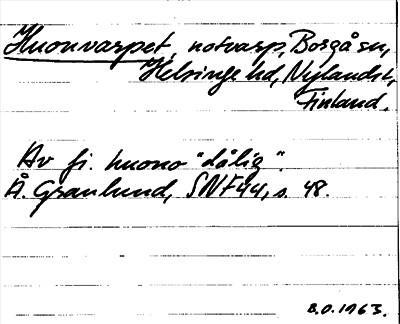 Huonvarpet, notvarp, Borgå sn,
Helsinge hd, Nylands l,
Finland.
Av fi. huono "dålig".
Å. Granlund, SNF 44, s. 48.
B.O. 1963.